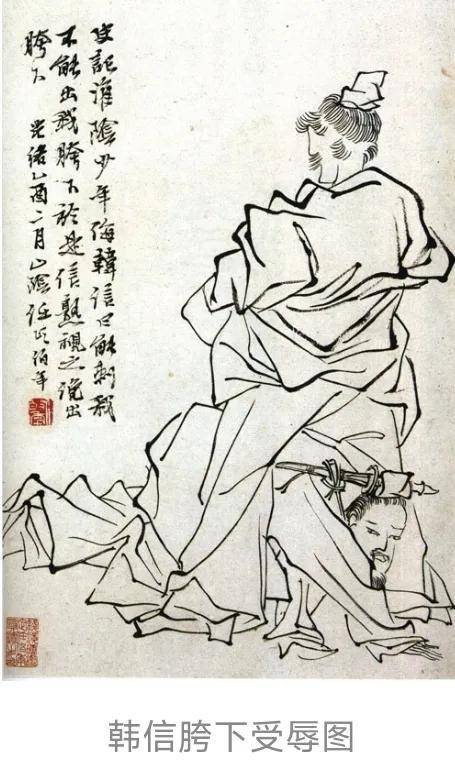 史記淮陰少年侮韓信曰能刺我
不能出我胯下於是信熟視之俛出
胯下 光緒乙酉二月山陰任頤伯年
韩信胯下受辱图